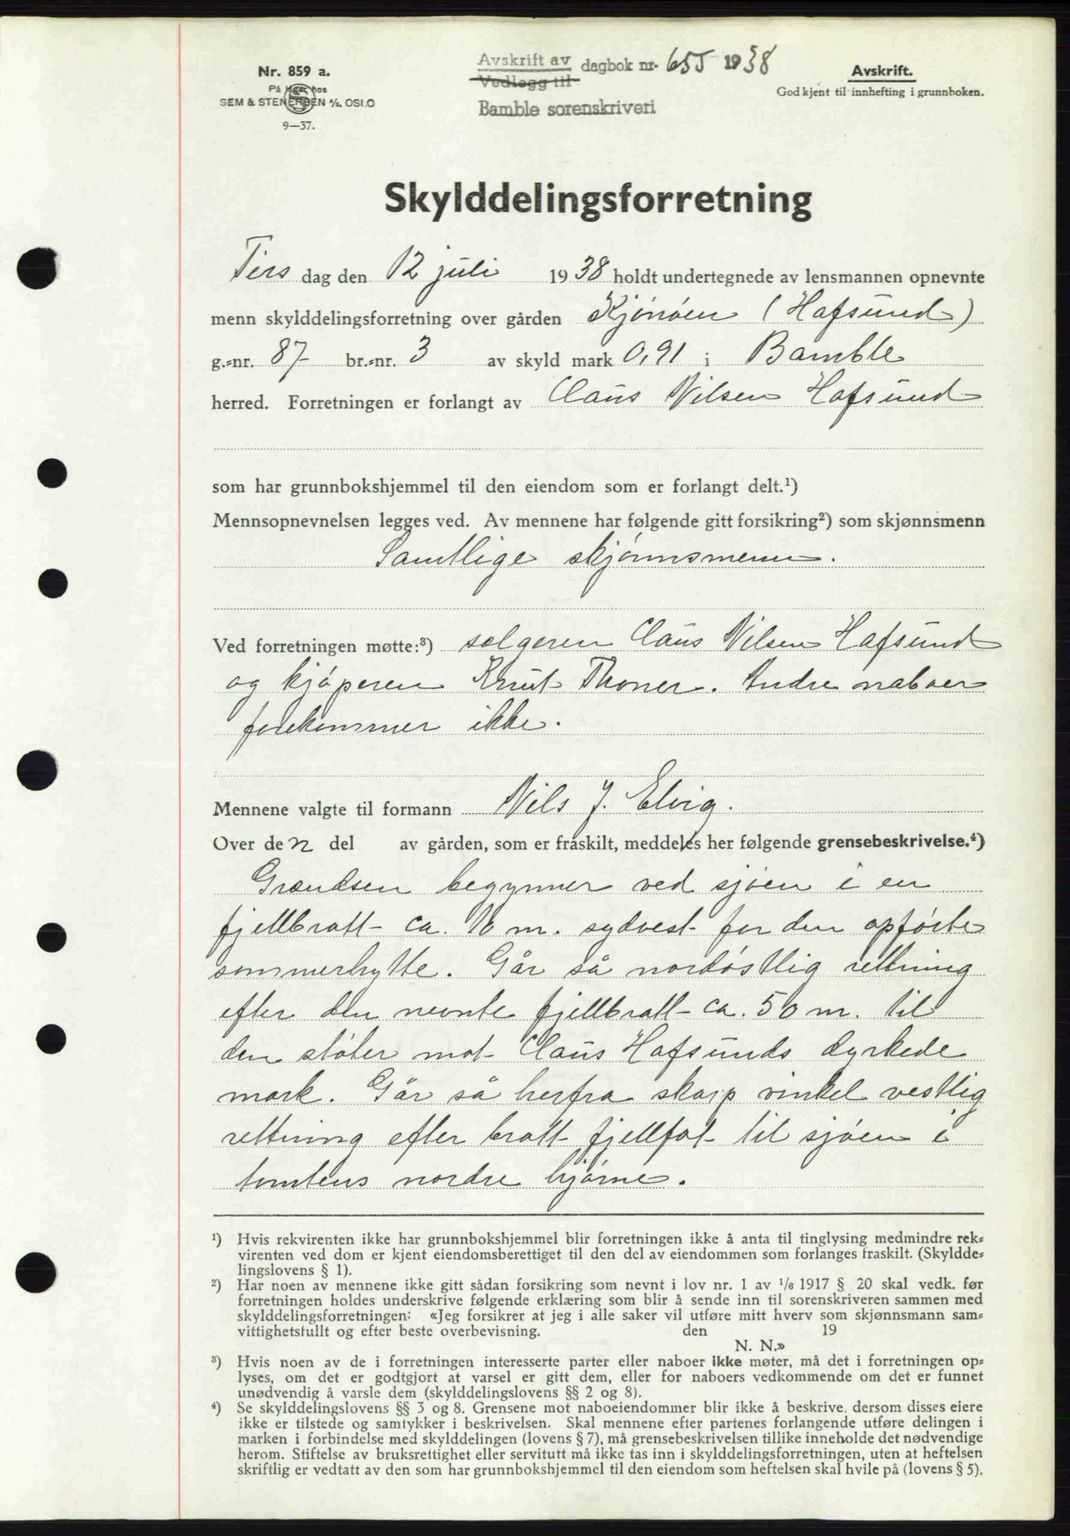 Nr. 859 a.
På lager hos
SEM & STENERSEN A/S, OSLO
9—37.
Avskrift av
Vedlegg til
dagbok nr. 655 1938
Bamble sorenskriveri
Avskrift.
Godkjent til innhefting i grunnboken.
Skylddelingsforretning
Tirs dag den 12 juli 1938 holdt undertegnede av lensmannen opnevnte
menn skylddelingsforretning over gården Kjønøen (Hafsund)
g.-nr. 87 br.-nr. 3 av skyld mark 0,91 i Bamble
herred. Forretningen er forlangt av Claus Nilsen Hafsund
som har grunnbokshjemmel til den eiendom som er forlangt delt.¹)
Mennsopnevnelsen legges ved. Av mennene har følgende gitt forsikring²) som skjønnsmenn
Samtlige skjønnsmenn.
Ved forretningen møtte:³) selgeren Claus Nilsen Hafsund
og kjøperen Knut Thoner. Andre naboer
forekommer ikke.
Mennene valgte til formann Nils J. Elvig.
Over den del av gården, som er fraskilt, meddeles her følgende grensebeskrivelse.⁴)
Grændsen begynner ved sjøen i en
fjellbratt ca. 16 m. sydvest for den opførte
sommerhytte. Går så nordøstlig rettning
efter den nevnte fjellbratt ca. 50 m. til
den støter mot Claus Hafsunds dyrkede
mark. Går så herfra skarp vinkel vestlig
rettning efter bratt fjellfot til sjøen i
tomtens nordre hjørne.
¹) Hvis rekvirenten ikke har grunnbokshjemmel blir forretningen ikke å anta til tinglysing medmindre rek-
virenten ved dom er kjent eiendomsberettiget til den del av eiendommen som forlanges fraskilt. (Skyldde-
lingslovens § 1).
²) Har noen av mennene ikke gitt sådan forsikring som nevnt i lov nr. 1 av 1/6 1917 § 20 skal vedk. før
forretningen holdes underskrive følgende erklæring som blir å sende inn til sorenskriveren sammen med
skylddelingsforretningen: «Jeg forsikrer at jeg i alle saker vil utføre mitt hverv som skjønnsmann sam-
vittighetsfullt og efter beste overbevisning. den 19
N. N.»
³) Hvis noen av de i forretningen interesserte parter eller naboer ikke møter, må det i forretningen op-
lyses, om det er godtgjort at varsel er gitt dem, eller for naboers vedkommende om det er funnet
unødvendig å varsle dem (skylddelingslovens §§ 2 og 8).
⁴) Se skylddelingslovens §§ 3 og 8. Grensene mot naboeiendommer blir ikke å beskrive, dersom disses eiere
ikke er tilstede og samtykker i beskrivelsen. Skal mennene efter partenes forlangende utføre delingen i
marken i forbindelse med skylddelingen (lovens § 7), må grensebeskrivelsen tillike inneholde det nødvendige
herom. Stiftelse av bruksrettighet eller servitutt må ikke tas inn i skylddelingsforretningen, uten at heftelsen
skriftlig er vedtatt av den som har grunnbokshjemmel til den eiendom som heftelsen skal hvile på (lovens § 5).